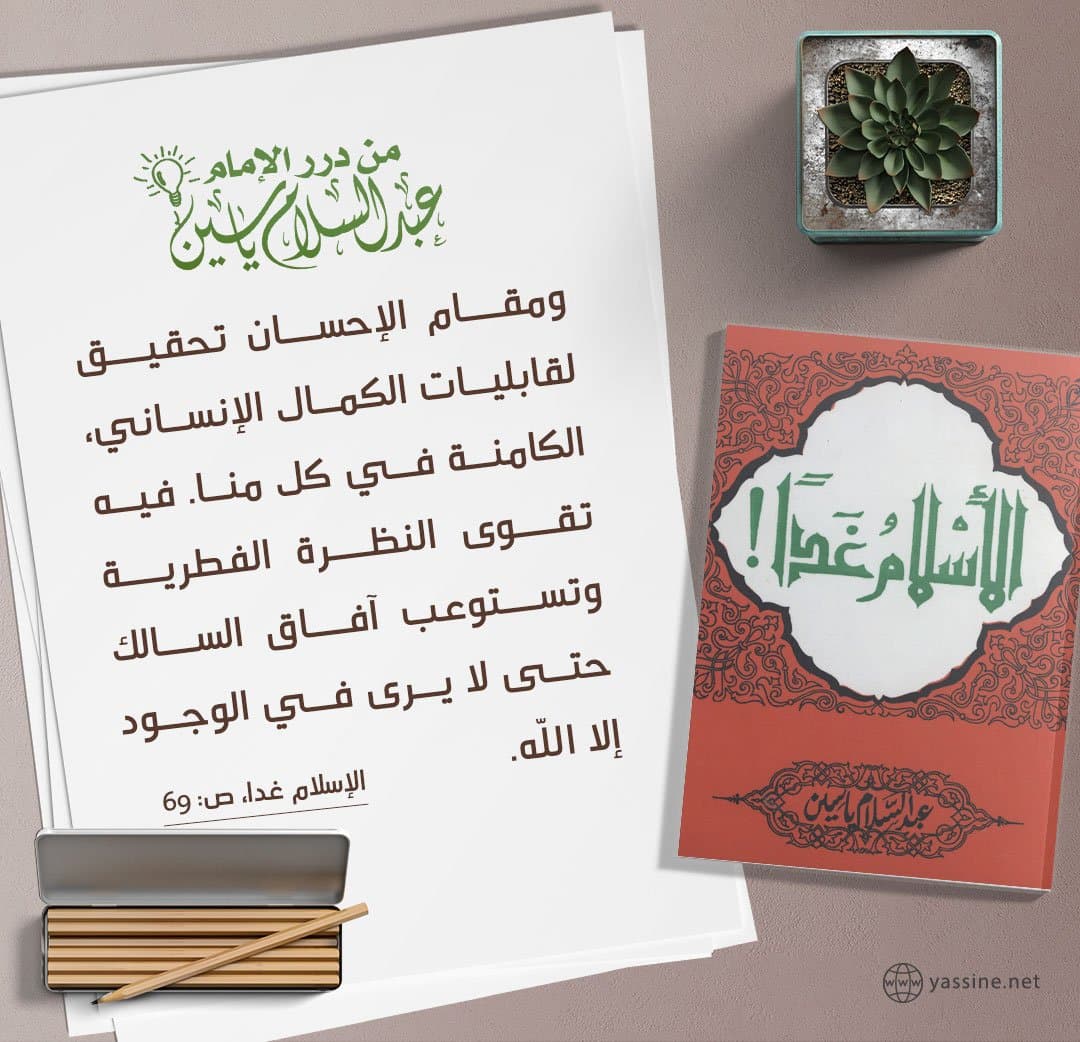 من درر الإمام
عبد السلام ياسين
ومقام الإحسان تحقيق
لقابليات الكمال الإنساني،
الكامنة في كل منا. فيه
تقوى النظرة الفطرية
وتستوعب آفاق السالك
حتى لا يرى في الوجود
إلا الله.
الإسلام غدا، ص: 69
الأسْلامُ غَدًا!
عبد السّلام ياسين
www yassine.net